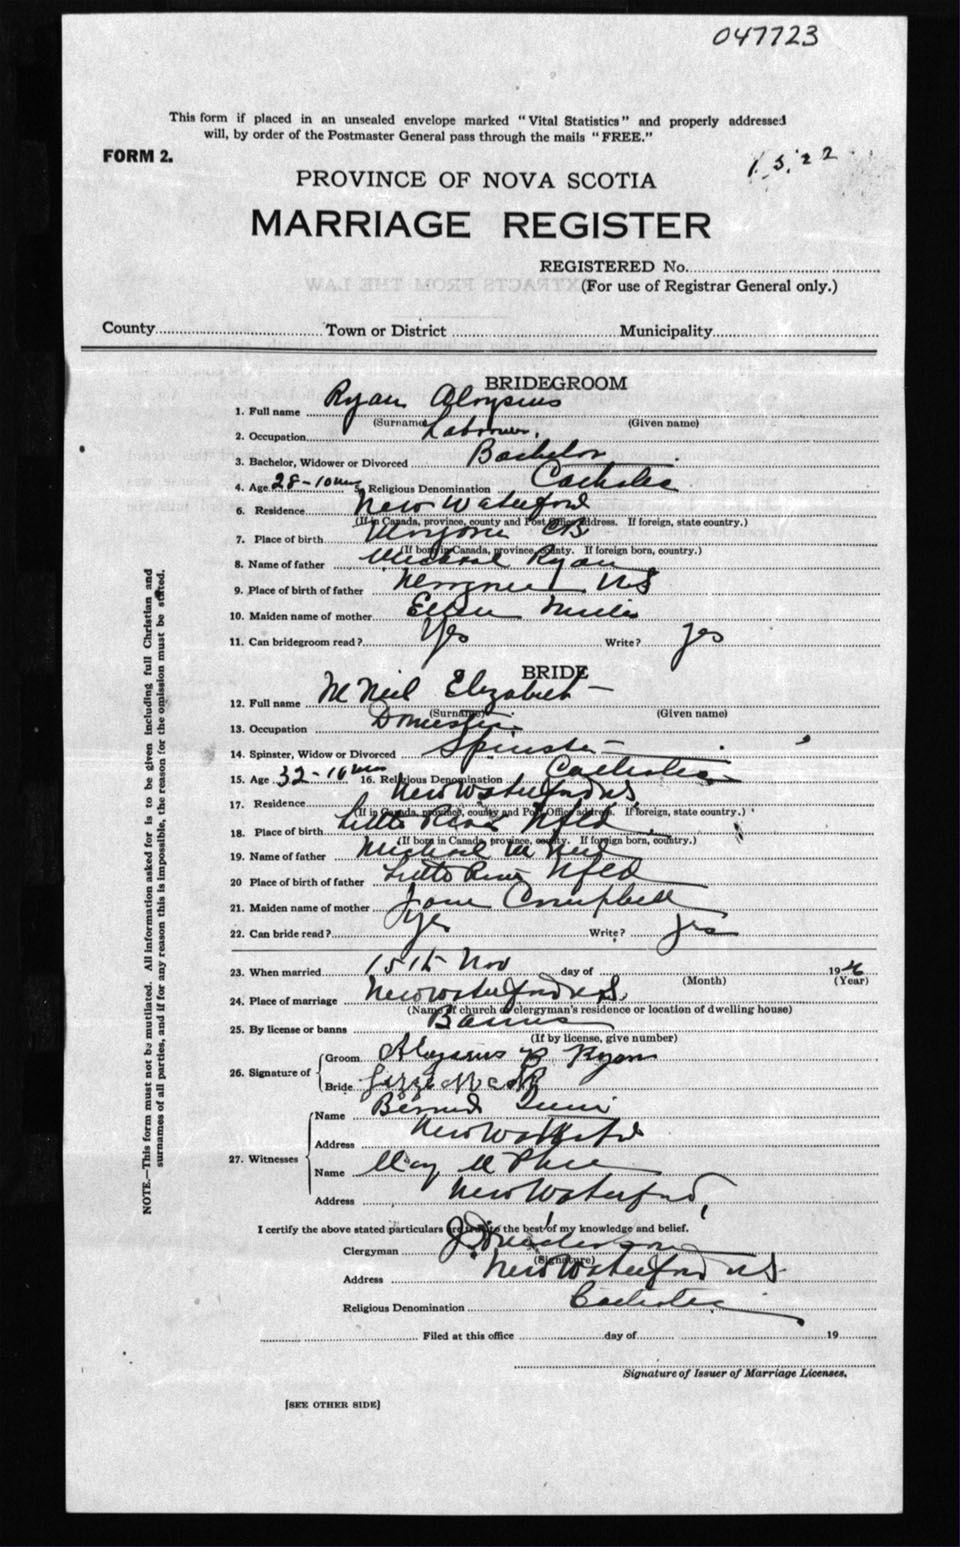 047723
This form if placed in an unsealed envelope marked "Vital Statistics" and properly addressed
will, by order of the Postmaster General pass through the mails "FREE."
FORM 2.
PROVINCE OF NOVA SCOTIA
MARRIAGE REGISTER
REGISTERED No.
(For use of Registrar General only.)
County Town or District Municipality
BRIDEGROOM
1. Full name Ryan Aloysius
(Surname) (Given name)
2. Occupation Labourer.
3. Bachelor, Widower or Divorced Bachelor
4. Age 28-10 5. Religious Denomination Catholic
6. Residence New Waterford
(If in Canada, province, county and Post Office address. If foreign, state country.)
7. Place of birth CB
(If born in Canada, province, county. If foreign born, country.)
8. Name of father Michael Ryan
9. Place of birth of father NS
10. Maiden name of mother Ellen
11. Can bridegroom read? Yes Write? Yes
BRIDE
12. Full name McNeil Elizabeth
(Surname) (Given name)
13. Occupation Domestic
14. Spinster, Widow or Divorced Spinster
15. Age 32-10 16. Religious Denomination Catholic
17. Residence New Waterford NS
(If in Canada, province, county and Post Office address. If foreign, state country.)
18. Place of birth Little River Nfld
(If born in Canada, province, county. If foreign born, country.)
19. Name of father Michael McNeil
20 Place of birth of father Little River Nfld
21. Maiden name of mother Jane Campbell
22. Can bride read? Yes Write? Yes
23. When married 15th Nov day of 19
(Month) (Year)
24. Place of marriage New Waterford N.S.
(Name of church or clergyman's residence or location of dwelling house)
25. By license or banns Banns
(If by license, give number)
26. Signature of Groom Aloysius P Ryan
Bride Lizzie McN
27. Witnesses Name Bernard
Address New Waterford
Name May McPhee
Address New Waterford
I certify the above stated particulars are true to the best of my knowledge and belief.
Clergyman
(Signature)
Address New Waterford N S
Religious Denomination Catholic
Filed at this office day of 19
Signature of Issuer of Marriage Licenses.
[SEE OTHER SIDE]
NOTE.—This form must not be mutilated. All information asked for is to be given including full Christian and
surnames of all parties, and if for any reason this is impossible, the reason for the omission must be stated.